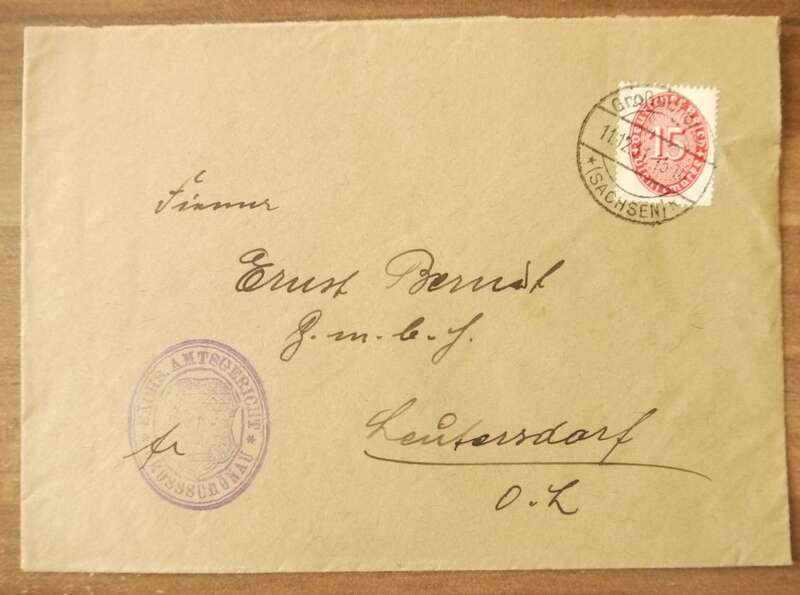 Großschönau
11.12.
15
* (SACHSEN) *
Firma
Ernst Berndt
G. m. b. H.
Leutersdorf
O. L
SÄCHS. AMTSGERICHT
* GROSSSCHÖNAU *